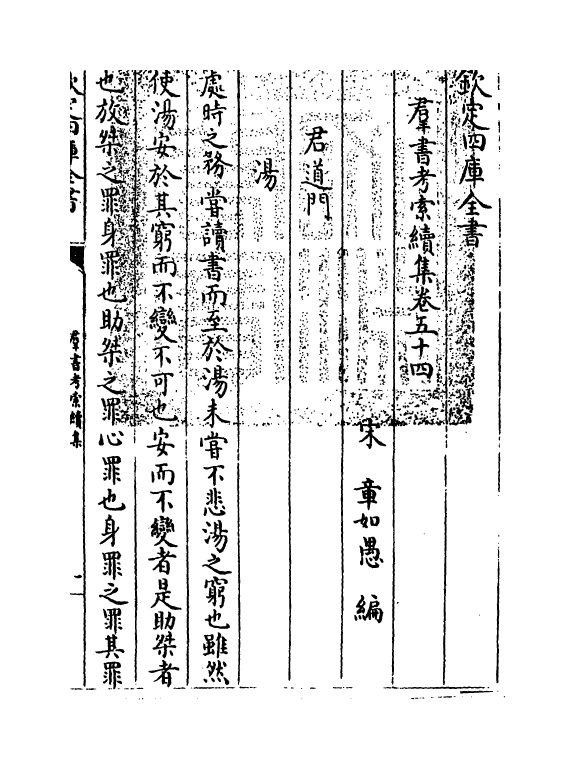 欽定四庫全書
羣書考索續集卷五十四
宋 章如愚 編
君道門
湯
處時之務嘗讀書而至於湯未嘗不悲湯之窮也雖然
使湯安於其窮而不變不可也安而不變者是助桀者
也放桀之罪身罪也助桀之罪心罪也身罪之罪其罪
欽定四庫全書
羣書考索續集
一